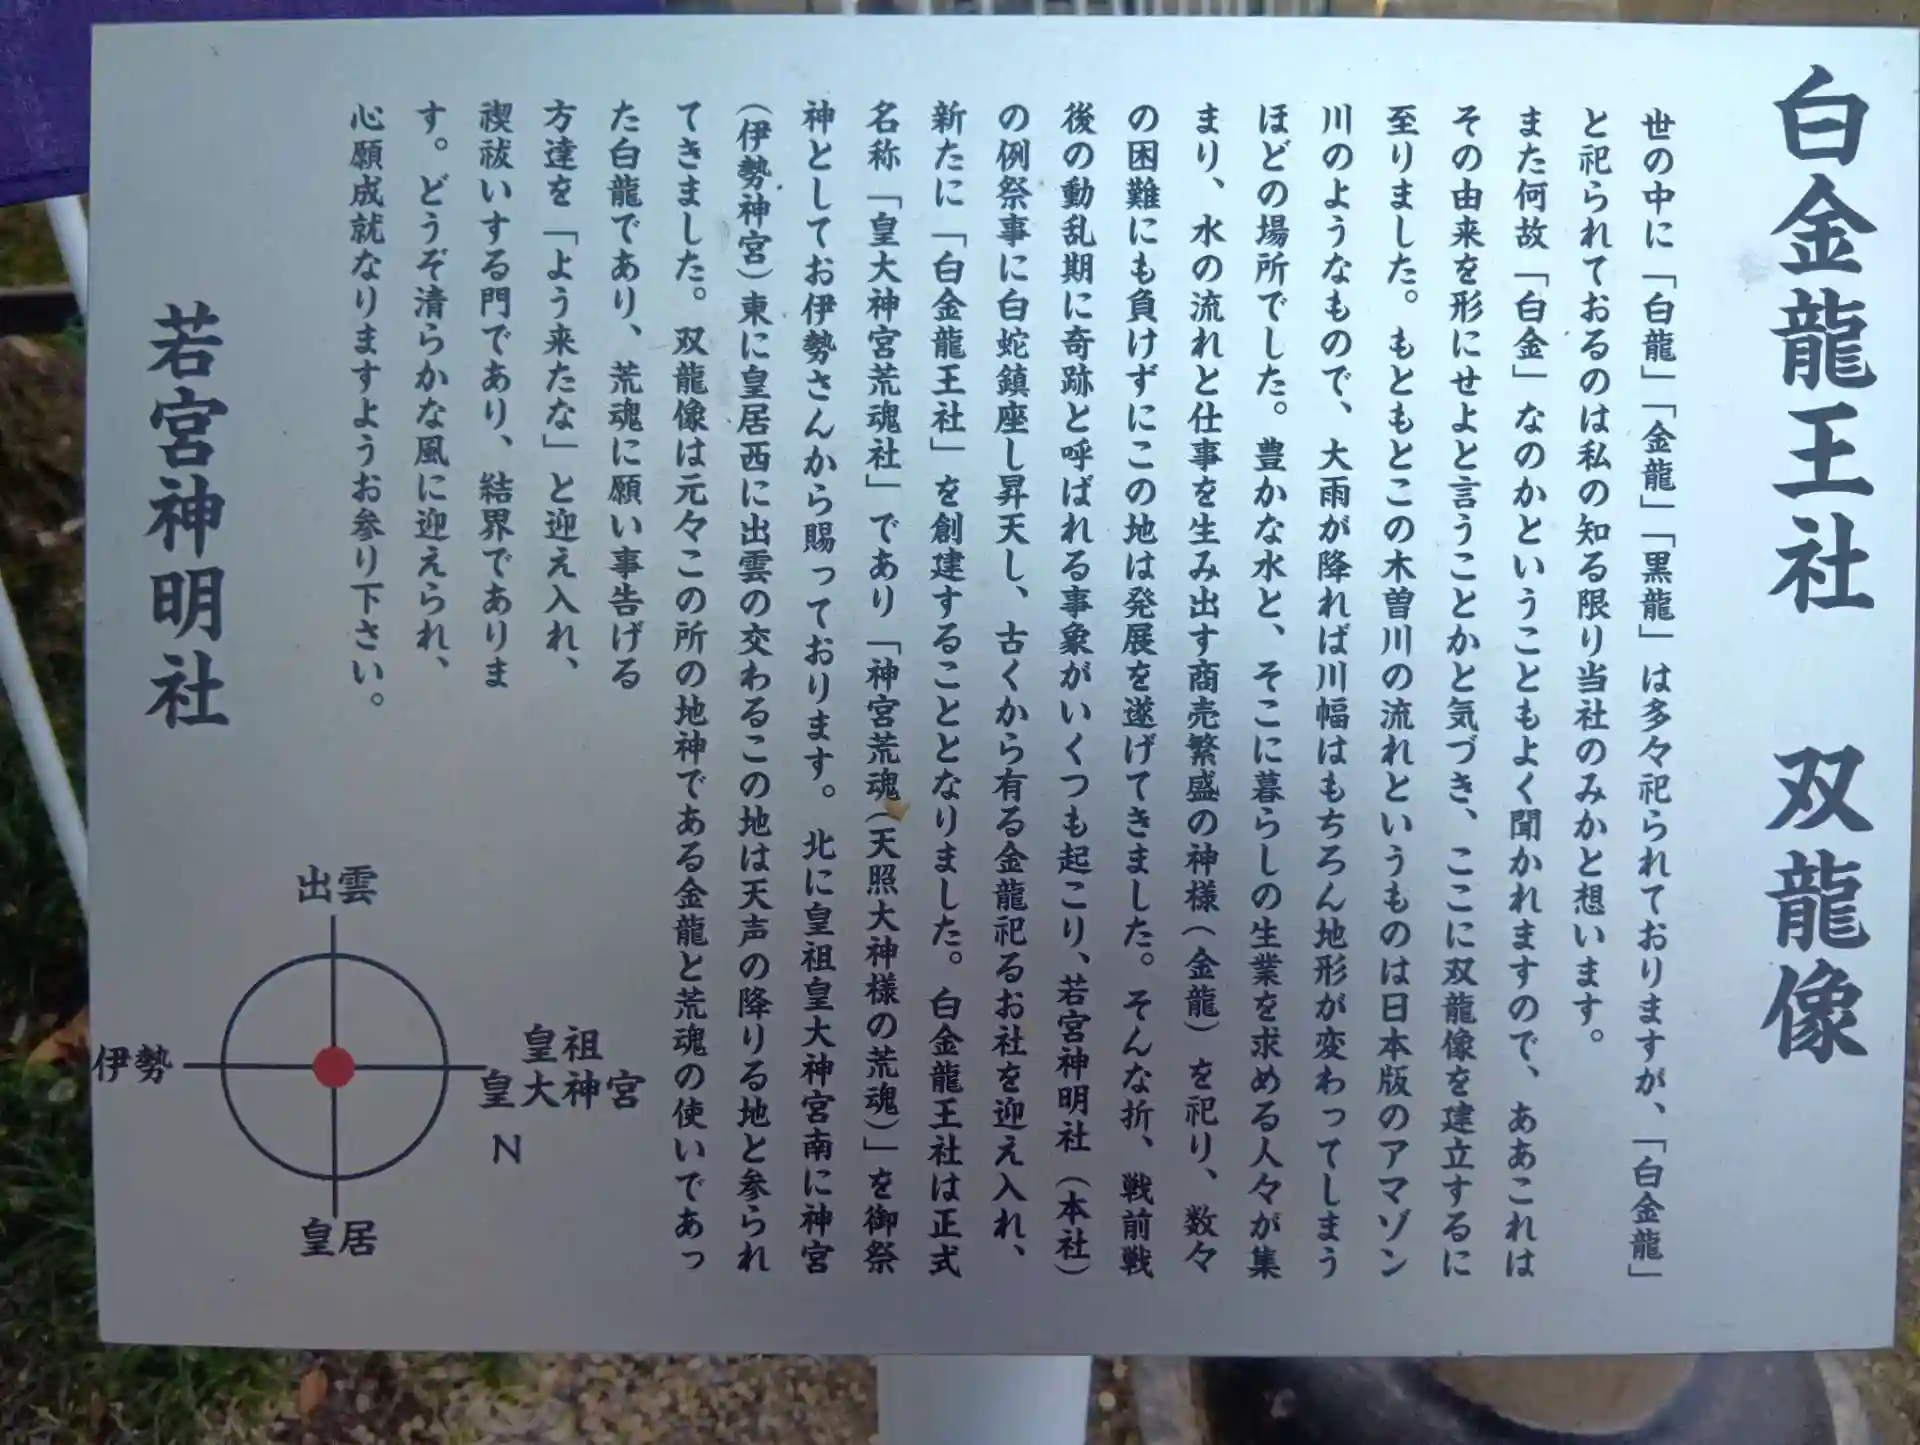 白金龍王社　双龍像
世の中に「白龍」「金龍」「黒龍」は多々祀られておりますが、「白金龍」
と祀られておるのは私の知る限り当社のみかと想います。
また何故「白金」なのかということもよく聞かれますので、ああこれは
その由来を形にせよと言うことかと気づき、ここに双龍像を建立するに
至りました。もともとこの木曽川の流れというものは日本版のアマゾン
川のようなもので、大雨が降れば川幅はもちろん地形が変わってしまう
ほどの場所でした。豊かな水と、そこに暮らしの生業を求める人々が集
まり、水の流れと仕事を生み出す商売繁盛の神様（金龍）を祀り、数々
の困難にも負けずにこの地は発展を遂げてきました。そんな折、戦前戦
後の動乱期に奇跡と呼ばれる事象がいくつも起こり、若宮神明社（本社）
の例祭事に白蛇鎮座し昇天し、古くから有る金龍祀るお社を迎え入れ、
新たに「白金龍王社」を創建することとなりました。白金龍王社は正式
名称「皇大神宮荒魂社」であり「神宮荒魂（天照大神様の荒魂）」を御祭
神としてお伊勢さんから賜っております。北に皇祖皇大神宮南に神宮
（伊勢神宮）東に皇居西に出雲の交わるこの地は天声の降りる地と参られ
てきました。双龍像は元々この所の地神である金龍と荒魂の使いであっ
た白龍であり、荒魂に願い事告げる
方達を「よう来たな」と迎え入れ、
禊祓いする門であり、結界でありま
す。どうぞ清らかな風に迎えられ、
心願成就なりますようお参り下さい。
若宮神明社
出雲
伊勢
皇祖
皇大神宮
N
皇居